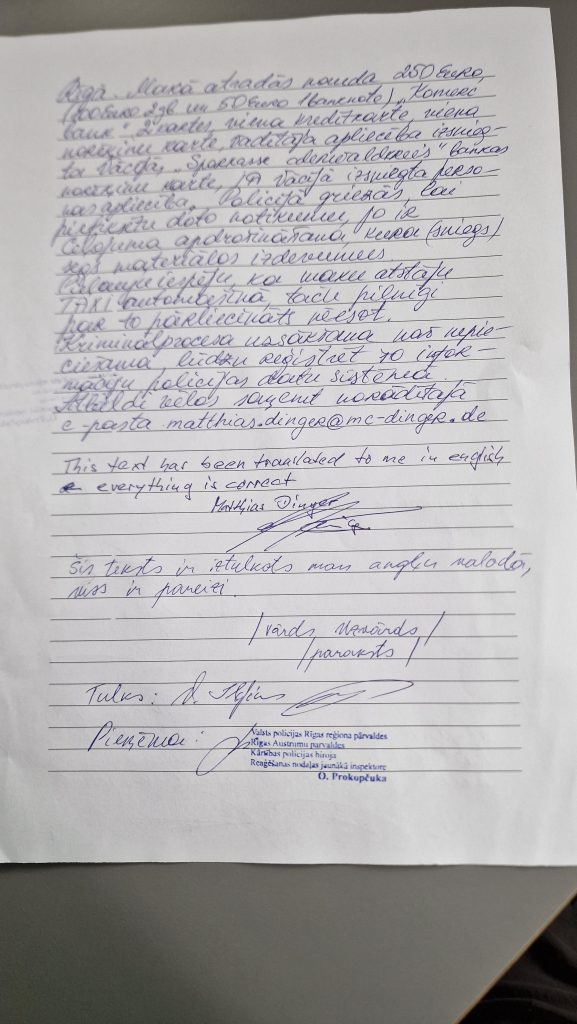 Rīgā. Makā atradās nauda 250 Euro,
(100 Euro 2gb. un 50 Euro 1 banknote), "Komerc
bank" 2 kartes, viena kredītkarte, viena
norēķinu karte, vadītāja apliecība izsnieg-
ta Vācijā, "Sparkasse" bankas
norēķinu karte, Vācijā izsniegta perso-
nas apliecība. Policijā griezās, lai
pieteiktu doto notikumu, jo ir
ceļojuma apdrošināšana, kura (sniegs)
segs materiālos izdevumus
Pieļauju iespēju, ka maku atstāju
TAXI automašīnā, taču pilnīgi
par to pārliecināts neesot.
Kriminālprocesa uzsākšana nav nepie-
ciešama, lūdzu reģistrēt šo infor-
māciju policijas datu sistēmā.
Atbildi vēlos saņemt norādītajā
e-pasta matthias.dinger@mc-dinger.de
This text has been translated to me in english
everything is correct
Matthias Dinger
Šis teksts ir iztulkots man angļu valodā,
viss ir pareizi.
/vārds, uzvārds/
/paraksts/
Tulks:
Pieņēma:
Valsts policijas Rīgas reģiona pārvaldes
Rīgas Austrumu pārvaldes
Kārtības policijas biroja
Reaģēšanas nodaļas jaunākā inspektore
O. Prokopčuka